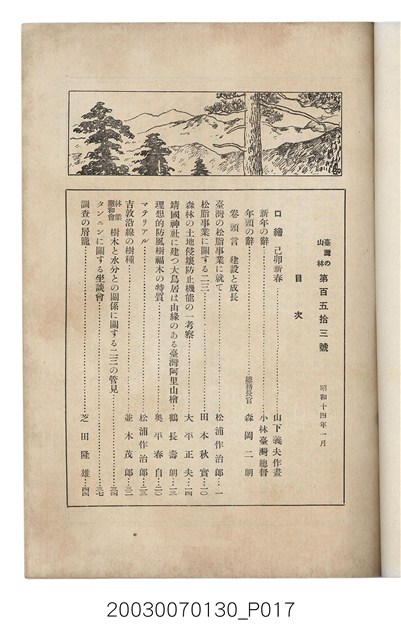 臺灣の山林 第百五拾三號 昭和十四年一月
目次
口繪 己卯新春……山下義夫作畫
新年の辭……小林臺灣總督
年頭の辭……總務長官 森岡二朗
卷頭言 建設と成長
臺灣の松脂事業に就て……松浦作治郎…一
松脂事業に關する二三……田本秋實…一〇
森林の土地侵壞防止機能の一考察……大平正夫…一四
靖國神社に建つ大鳥居は由緣のある臺灣阿里山檜…鶴長壽朗…一三
理想的防風樹福木の特質……奧平春自…二〇
マテリアル……松浦作治郎…二三
吉敦沿線の樹種……並木茂郎…三一
樹木と水分との關係に關する二三の管見……三四
タンニンに關する坐談會……三七
調査の屑籠……芝田隆雄…四四
20030070130_P017